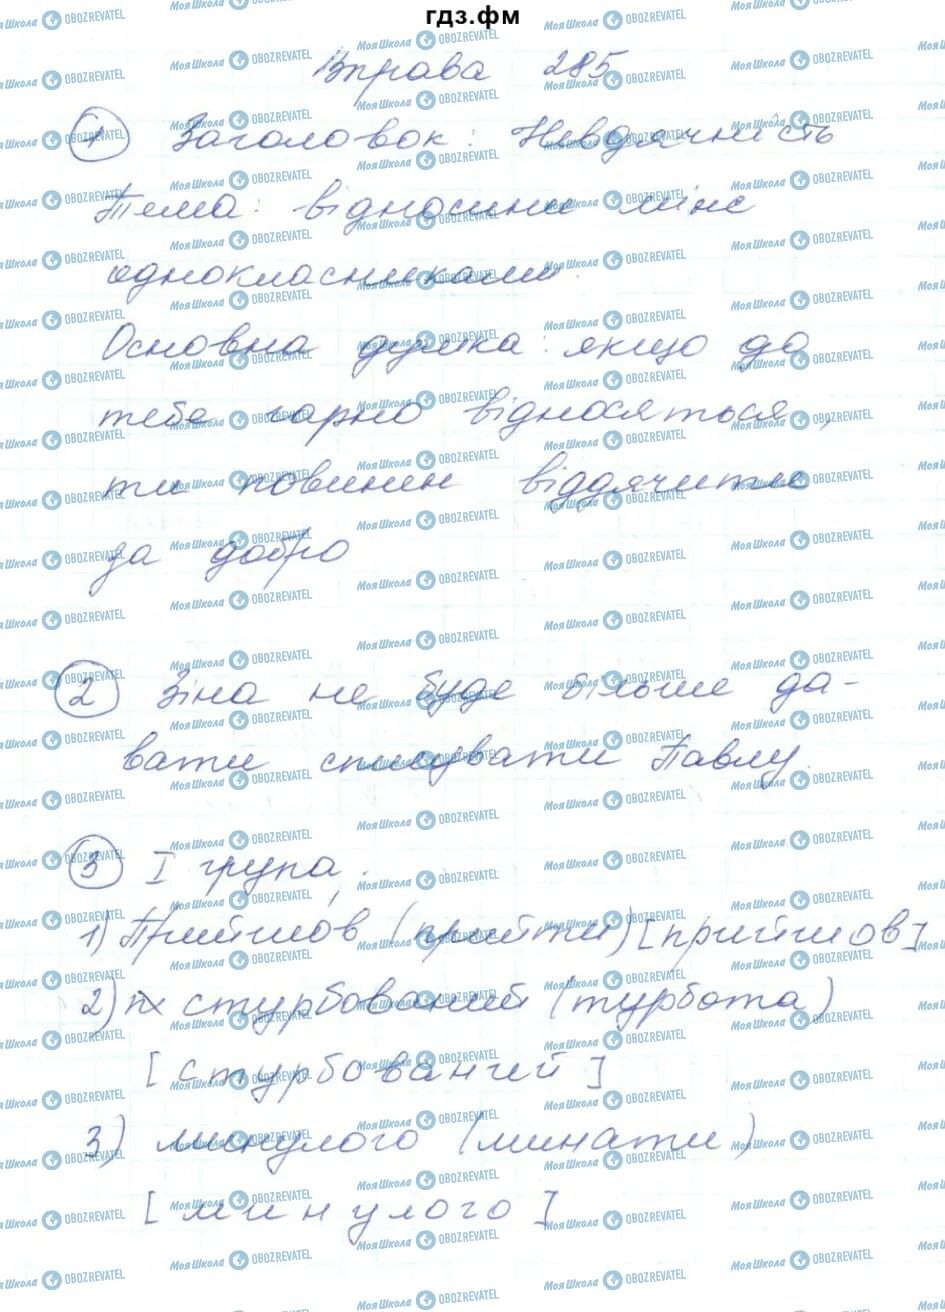 гдз.фм
Вправа 285
1 Заголовок: Невдячність
Тема: відносини між
однокласниками.
Основна думка: якщо до
тебе гарно відносяться,
ти повинен віддячити
за добро
2 Зіна не буде більше да-
вати списувати Павлу.
3 I група:
1) Прийшов (прийти) [прийшов]
2) стурбований (турбота)
[стурбований]
3) минулого (минати)
[минулого]
МояШкола OBOZREVATEL